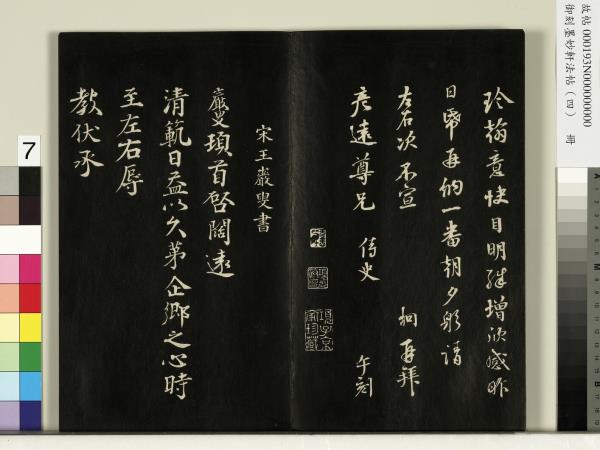 故帖 000193N000000000
御刻墨妙軒法帖（四） 冊
珍翰意快目明殊增欣感昨
日弊再納一番朝夕躬請
左右次不宣 再拜
彥遠尊兄 侍史 午刻
宋王巖叟書
巖叟頊首啓闊遠
清範日益以久第企鄉之心時
至左右辱
教伏承
7